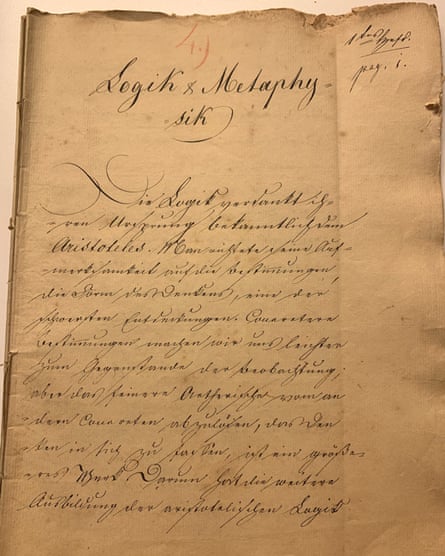 4.)
1tes Heft.
pag. 1.
Logik & Metaphy-
sik
Die Logik verdankt ih-
ren Ursprung bekanntlich dem
Aristoteles. Man richtete seine Auf-
merksamkeit auf die Bestimungen,
die Form des Denkens, eine der
schwersten Entdeckungen. Concretere
Bestimungen machen wir uns leichter
zum Gegenstande der Beobachtung;
aber das feinere Aetherische vom an
dern Concreten abzulösen, das Den
ken in sich zu fassen, ist ein größe-
res Werk. Darum hat die weitere
Ausbildung der aristotelischen Logik